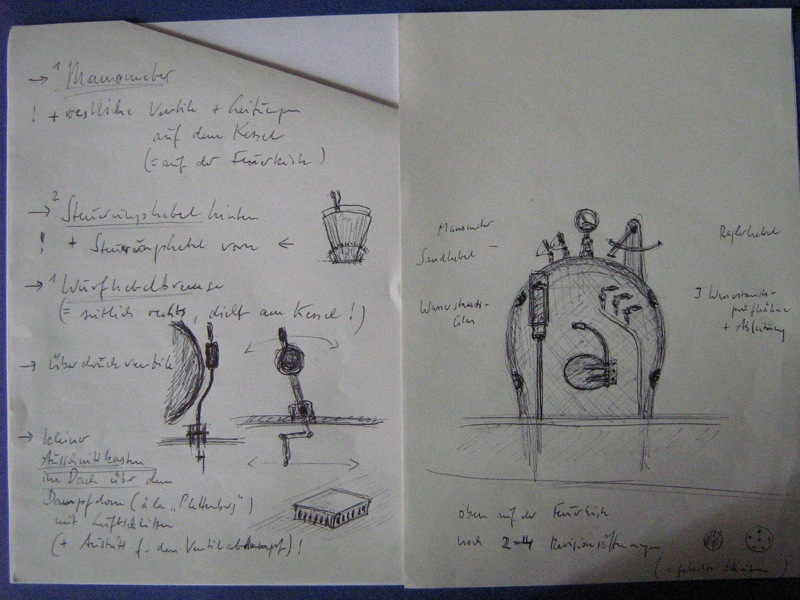 → 1 Manometer
! + restliche Ventile + Leitungen
auf dem Kessel
(= auf der Feuerkiste)
→ 2 Steuerungshebel hinten
! + Steuerungshebel vorn ←
→ 1 Wurfhebelbremse
(= seitlich rechts, dicht am Kessel!)
→ Überdruckventile
→ kleiner
Ausschnittkasten
im Dach über dem
Dampfdom (à la „Plettenberg")
mit Luftschlitzen
(+ Austritt f. den Ventilabdampf)!
Manometer
Sandhebel
Wasserstands-
glas
Reglerhebel
3 Wasserstands-
prüfhähne
+ Ableitung
oben auf der Feuerkiste
noch 2-4 Revisionsöffnungen